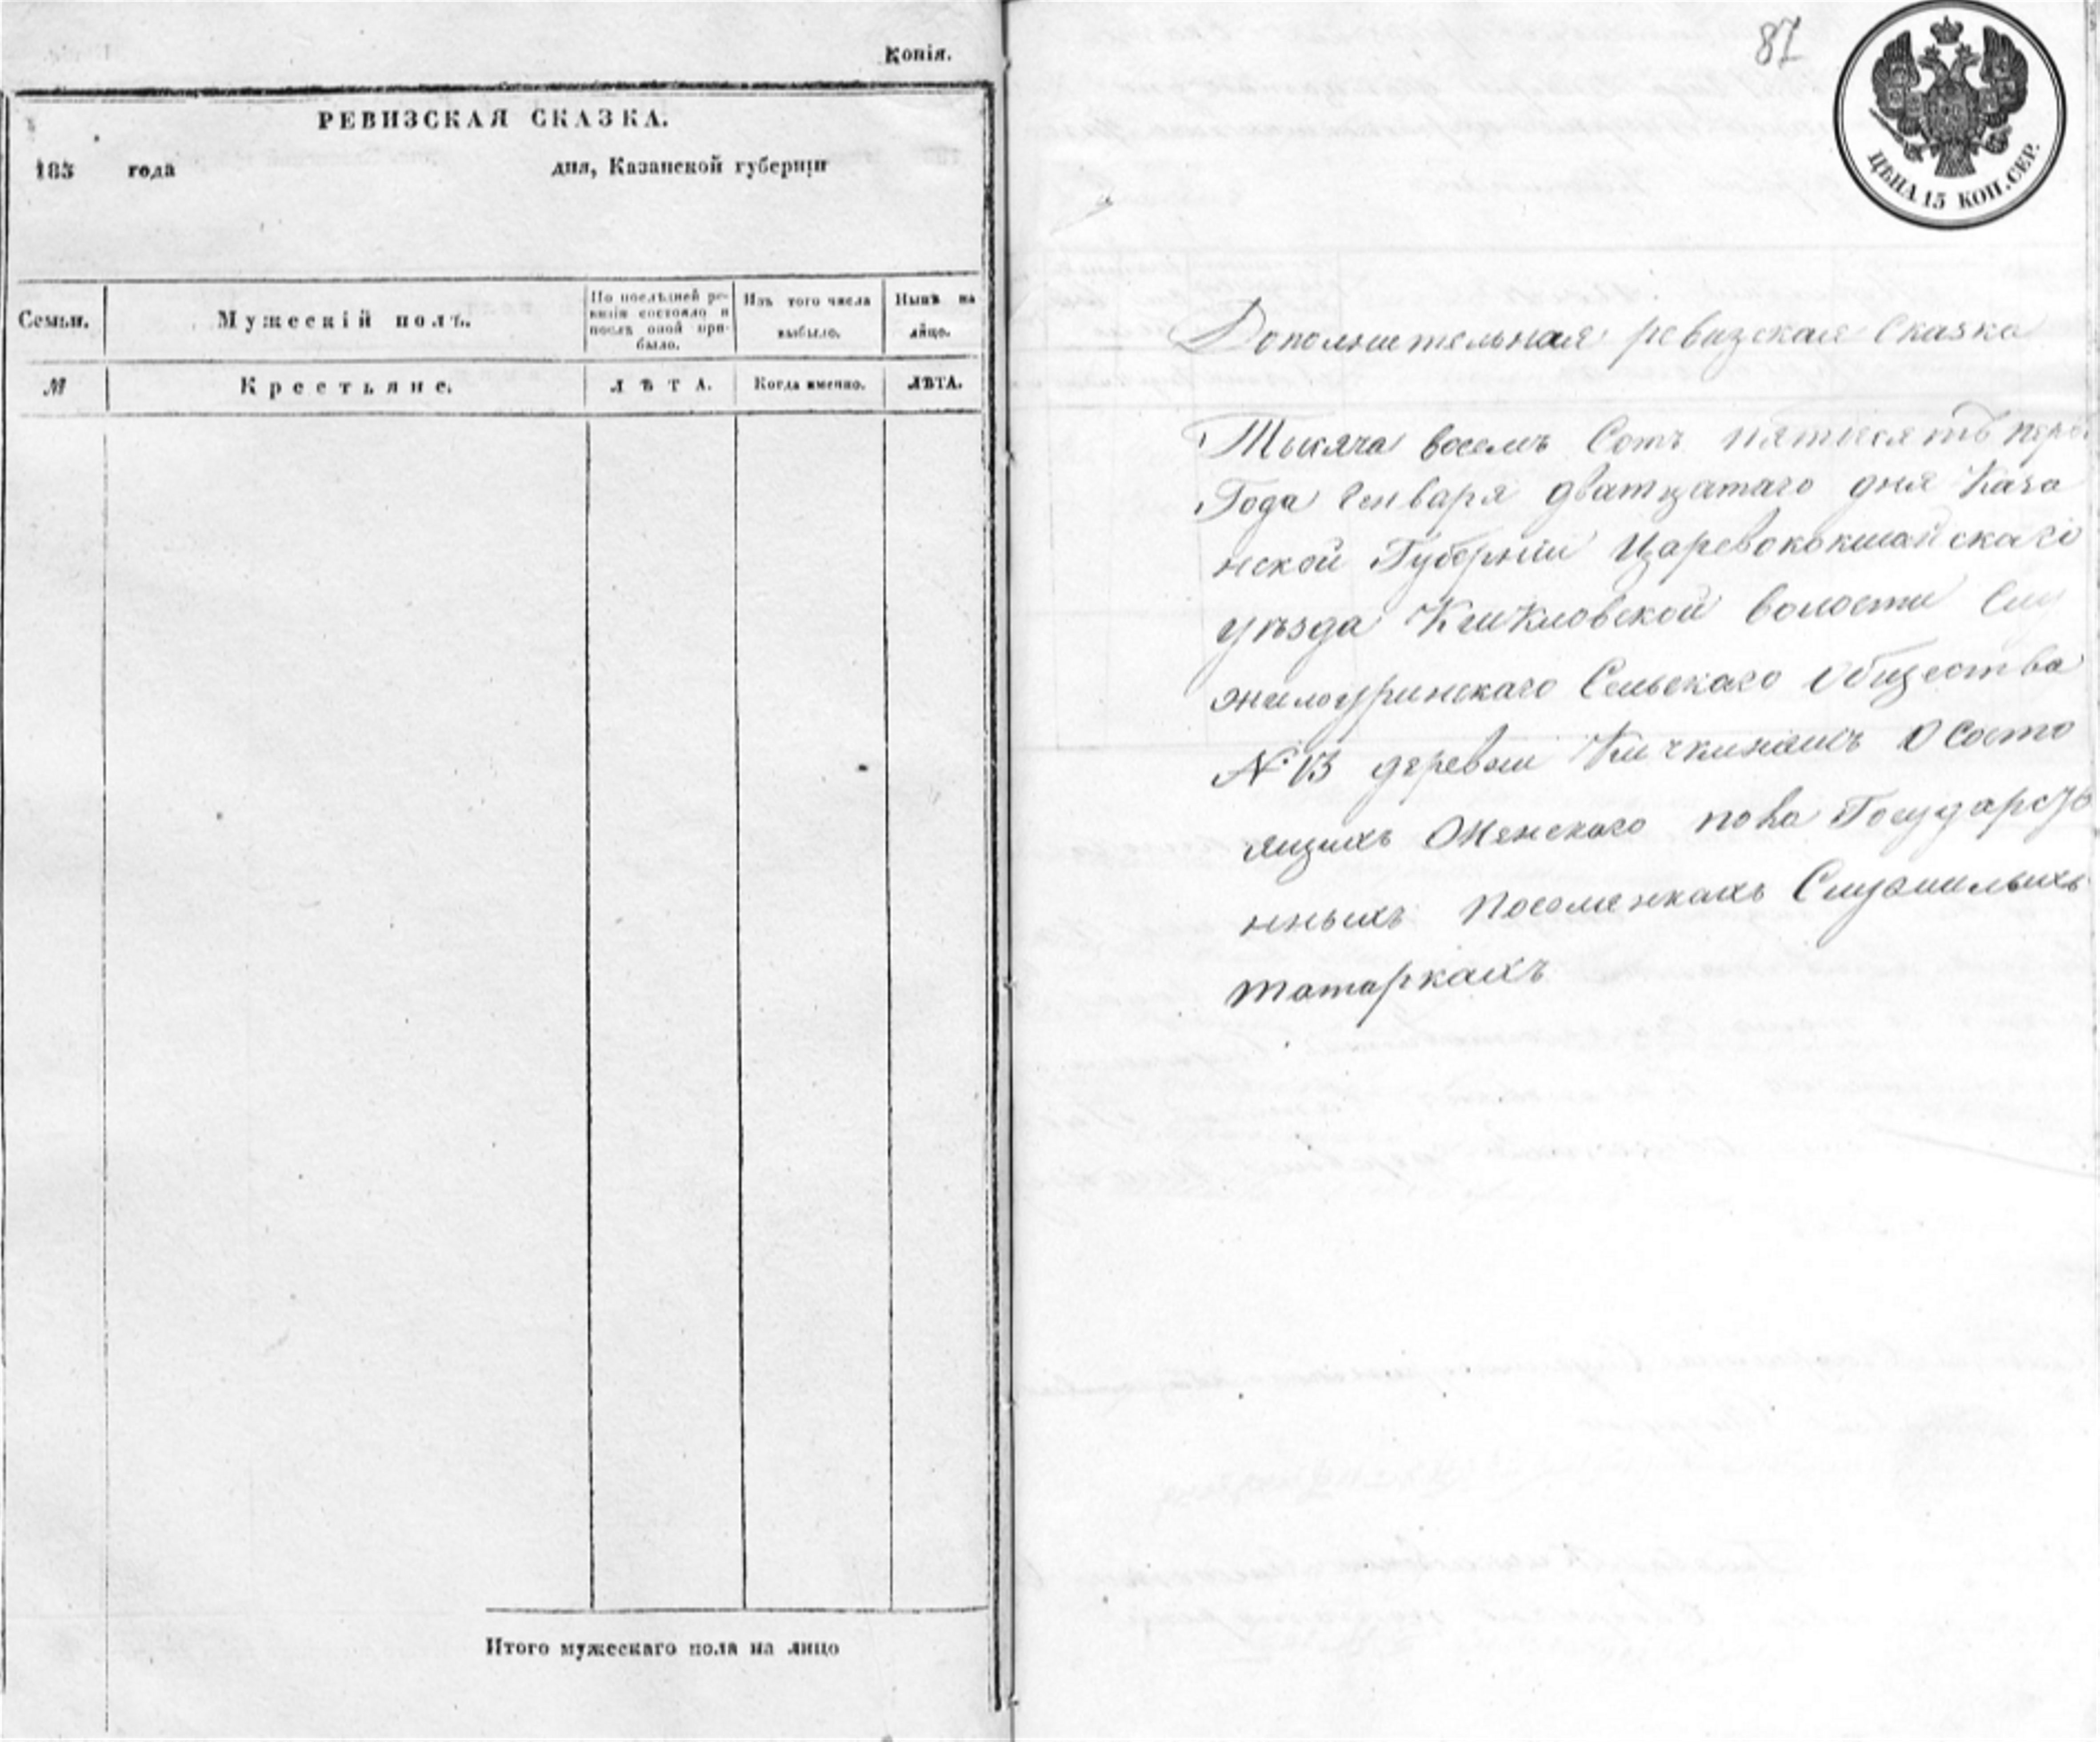 Копія.
РЕВИЗСКАЯ СКАЗКА.
185 года дня, Казанской губерніи
Семьи.
Мужескій полъ.
По послѣдней ре-
визіи состояло и
послѣ оной при-
было.
Изъ того числа
выбыло.
Нынѣ на
лицо.
№
Крестьяне.
ЛѢТА.
Когда именно.
ЛѢТА.
Итого мужескаго пола на лицо
87
ЦѢНА 15 КОП. СЕР.
Дополнительная ревизская Сказка
Тысяча восемъ Сотъ пятьдесятъ
Года Генваря дватцатаго дня Каза
нской Губерніи Царевококшайскаго
уѣзда волости
Сельскаго Общества
№ 13 деревни О Состо
ящихъ Женскаго пола Государств
нныхъ поселенкахъ Служилыхъ
татаркахъ